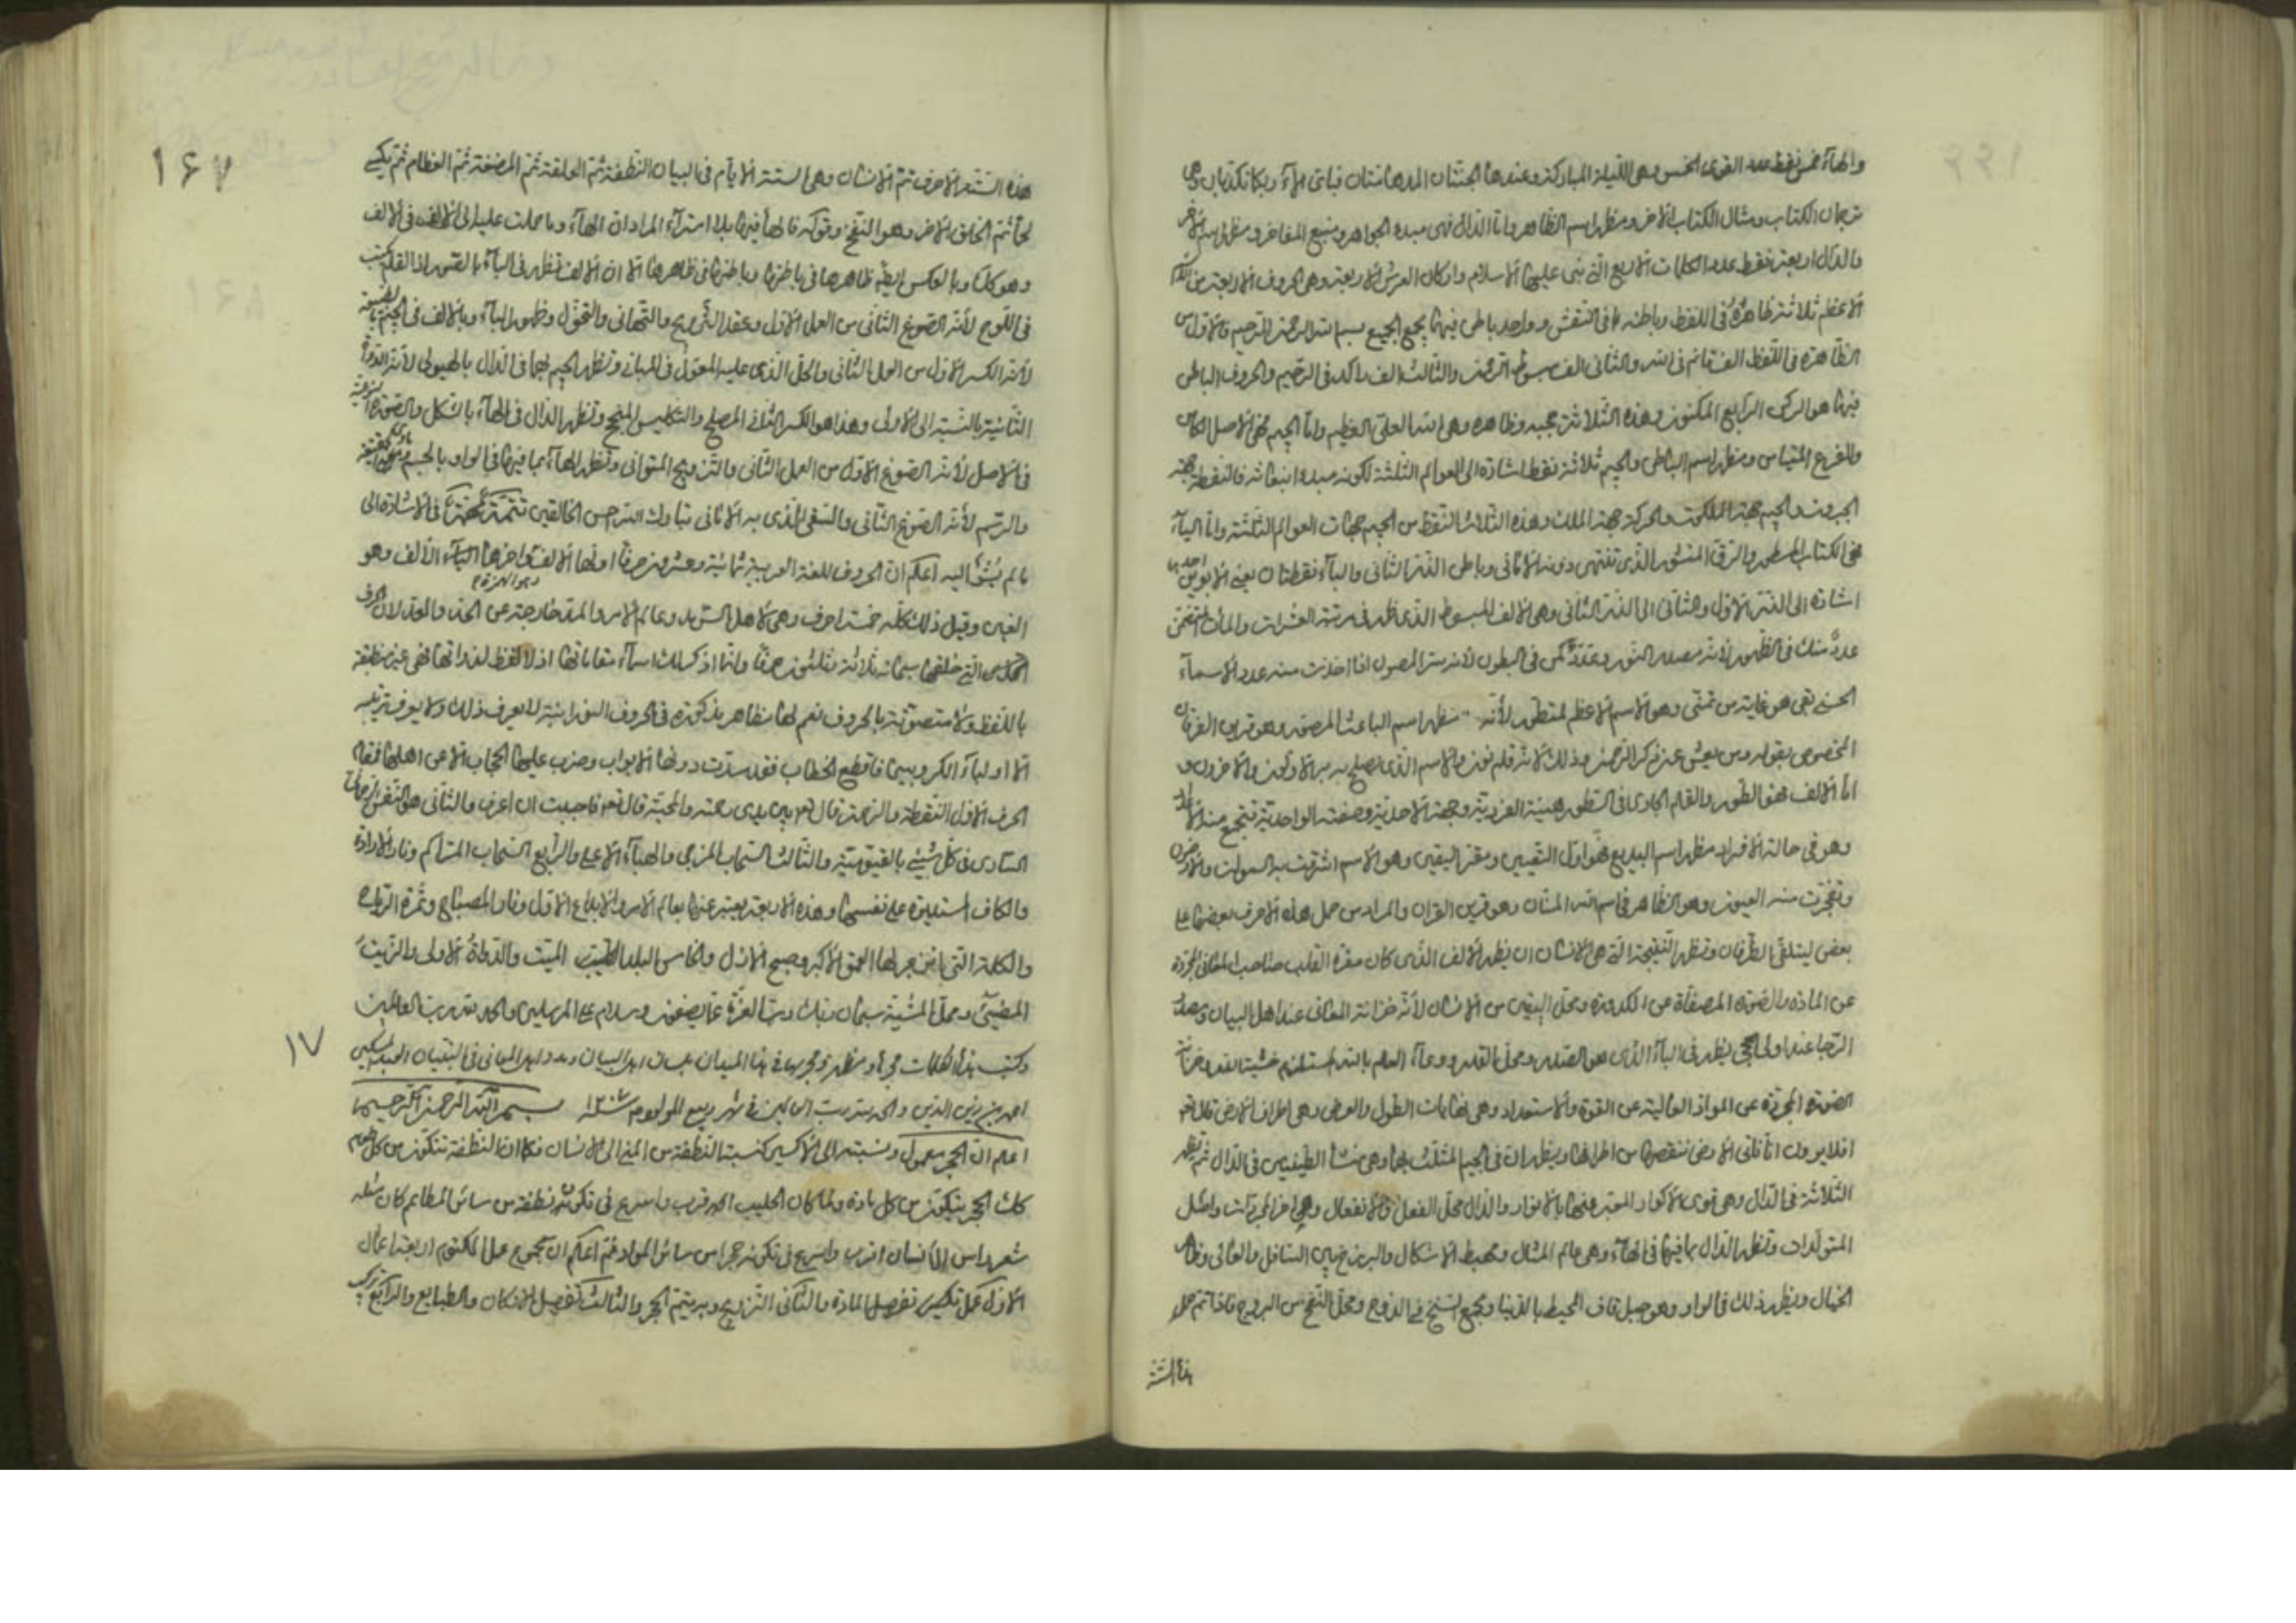 والهاء خمس نقط عدد القوى الخمس وهى الليلة المباركة وعندها الجنتان المدهامتان فباى آلاء ربكما تكذبان وهى
ترجمان الكتاب ومثال الكتاب الآخر ومظهر اسم الظاهر واما الدال فهى مبدء الجواهر ومنبع المفاخر ومظهر اسم الآخر
والدال اربعة نقط عدد الكلمات الاربع التى بنى عليها الاسلام واركان العرش الاربعة وهى الحروف الاربعة من
الاعظم ثلاثة ظاهرة فى اللفظ وباطنة فى النقش وواحد باطن فيها يجمع الجميع بسم الله الرحمن الرحيم فالاول من
الظاهرة فى اللفظ الف قائم فى الله والثانى الف مبسوط فى الرحمن والثالث الف راكد فى الرحيم والحروف الباطن
فيها هو الركن الرابع المكنون وهذه الثلاثة حجبه وظاهره وهى الله العلى العظيم واما الجيم فهى الاصل
والفرع المقياس ومظهر اسم الباطن والجيم ثلاثة نقط اشارة الى العوالم الثلثة لكونه مبدء انبعاثه فالنقطة جهة
الجبروت والجيم جهة الملكوت والحركة جهة الملك وهذه الثلاث النقط من الجيم جهات العوالم الثلثة واما الباء
فهى الكتاب المسطور والرق المنشور الذى تنتهى دونه الامانى وباطن القدر الثانى والباء نقطتان يعنى الابوين احديهما
اشارة الى القدر الاول والثانى الى القدر الثانى وهى الالف المبسوط الذى ظهر فى رتبة العشرات والمأت
عدد منك فى الظهور لانه مصدر النور وعدد كن فى البطون لانه سر المصون اذا اخذت منه عدد الاسماء
الحسنى بقى هو غاية من تمنى وهو الاسم الاعظم المتطهر لانه مظهر اسم الباعث المصور وهو قرين الفرقان
المخصوص بقوله ومن يعش عن ذكر الرحمن وذلك لانه قلم نون والاسم الذى يصلح به الاولون والآخرون و
اما الالف فهو الطور والقلم الجارى فى السطور هيئة الفردية وجهة الاحدية وصفة الواحدية تتجمع منه
وهو فى حالة الافراد مظهر اسم البديع فهو اول التعيين ومقر اليقين وهو الاسم اشرقت به السموات والارضون
وتفجرت منه العيون وهو الظاهر فى اسم الله المنان وهو قرين القران والمراد من حمل هذه الاحرف بعضها على
بعض ليتلقى الطرفان وتظهر النتيجة التى هى الانسان ان يظهر الالف الذى كان مقره القلب صاحب المعانى المجردة
عن المادة والصورة المصفاة عن الكدورة ومحل اليقين من الانسان لانه خزانة المعانى عند اهل البيان
عند اولى الحجى يظهر فى الباء الذى هو الصدر ومحل القدر ووعاء العلم بالقدر
الصورة المجردة عن المواد العالية عن القوة والاستعداد وهى نهايات الطول والعرض وهى اطراف الارض قال تعالى
افلا يرون انا ناتى الارض ننقصها من اطرافها ويظهران فى الجيم المثلث بهما وهى منشأ الطبيعتين فى الدال ثم تظهر
الثلاثة فى الدال وهى قوى الاكوار المعبر عنها بالانوار والدال محل الفعل والانفعال
المتولدات وتظهر الدال بما فيها فى الهاء وهى عالم المثال ومهبط الاشكال والبرزخ بين السافل والعالى
الخيال ويظهر ذلك فى الواو وهو جبل قاف المحيط بالدنيا ومحل النفخ من الروح فاذا تم حمل
هذه الستة
١۶٧
هذه الستة الاحرف تم الانسان وهى الستة الايام فى البيان النطفة ثم العلقة ثم المضغة ثم العظام ثم يكسى
لحما ثم الخلق الآخر وهو النفخ وقوله فالهاء فيها بلا امتراء المراد ان الهاء وما حملت عليه الى الالف فى الالف
وهو كذلك وبالعكس ايضا ظاهرها فى باطنها وباطنها فى ظاهرها الا ان الالف تظهر فى الباء بالقسر اذ القلم كتب
فى اللوح لانه الصوغ الثانى من العمل الاول وعقد التزويج والتهانى والتحول وظهور الباء وبالالف فى الجيم بالطبيعة
لانه الكسر الاول من العمل الثانى والحل الذى عليه المعول فى المبانى وتظهر الجيم بهما فى الدال بالهيولى لانه الدورة
الثانية بالنسبة الى الاولى وهذا هو الكسر الثانى المصلح والتكليس المنجح وتظهر الدال فى الهاء بالشكل والصورة النوعية
فى الاصل لانه الصوغ الاول من العمل الثانى والتزويج المتوانى وتظهر الهاء بما فيها فى الواو بالجسم
والرسم لانه الصوغ الثانى والسقى الذى به الامانى تبارك الله احسن الخالقين تتمة مهمة فى الاشارة الى
ما لم يشر اليه اعلم ان الحروف للغة العربية ثمانية وعشرون حرفا اولها الالف واخرها الياء الالف وهو
الغين وقبل ذلك كله خمسة احرف وهى لاهل السرمد وعالم الامر والمدد خارجة عن الحد والعدد لان الحرف
التى خلقها سبحانه ثلاثة وثلثون حرفا وانما اذكر لك اسماء مقاماتها اذ لا لفظ لذواتها فهى غير منطقة
باللفظ ولا متصوتة بالحروف نعم لها مظاهر مذكورة فى الحروف النورانية لا يعرف ذلك ولا يعرف ترتيبه
الا اولياء الكروبيين فاقطع الخطاب فقد سدت دونها الابواب وضرب عليها الحجاب الا عن اهلها فقال
الحرف الاول النقطة والرحمة قال تعالى بين يدى رحمته والمحبة قال تعالى فاحببت ان اعرف والثانى هو النفس الرحمانى
السارى فى كل شىء بالقيومية والثالث السحاب المزجى والهباء الاعلى والرابع السحاب المتراكم ونار الارادة
والكاف المستديرة على نفسها وهذه الاربعة يعبر عنها بعالم الامر والابداع الاول ونار المصباح وثمرة الرياح
والكلمة التى انزجر لها العمق الاكبر وصبح الازل والخامس البلد الطيب الميت والدواة الاولى والزيت
المضىء ومحل المشية سبحان ربك رب العزة عما يصفون وسلام على المرسلين والحمد لله رب العالمين
وكتب هذه الكلمات فى هذا الميدان بلسان اهل البيان ومداد اهل المعانى فى التبيان العبد المسكين
احمد بن زين الدين والحمد لله رب العالمين فى شهر ربيع المولود سنة ١٢٠٧ بسم الله الرحمن الرحيم
١٧
اعلم ان الحجر معمول ونسبته الى الاكسير كنسبة النطفة من المنى الى الانسان فكما ان النطفة تتكون من كل طعام
كذلك الحجر يتكون من كل مادة ولما كان الحليب اقرب واسرع فى تكونه نطفة من سائر المطاعم كان مثله
شعر راس الانسان اقرب واسرع فى تكونه حجرا من سائر المواد ثم اعلم ان مجموع عمل المكتوم اربعة اعمال
الاول عمل تكليس تفصيل المادة والثانى التزويج وبه يتم الحجر والثالث تفصيل الاركان والطبايع والرابع تركيب